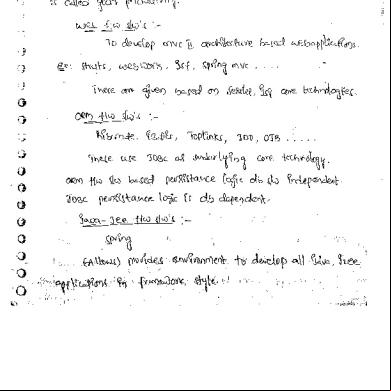 is called
web f/w s/w's :-
To develop mvc II architecture based web applications.
Ex: struts, webwork, JSF, spring mvc .....
These are given based on servlet, Jsp core technologies.
ORM f/w s/w's :-
Hibernate, Toplinks, JDO, OJB .....
These use JDBC as underlying core technology.
ORM f/w s/w based persistance logic db s/w independent.
JDBC persistance logic is db dependent.
Java-Jee f/w s/w's :-
spring
(Allows) provides environment to develop all Java, Jee
applications in framework style.